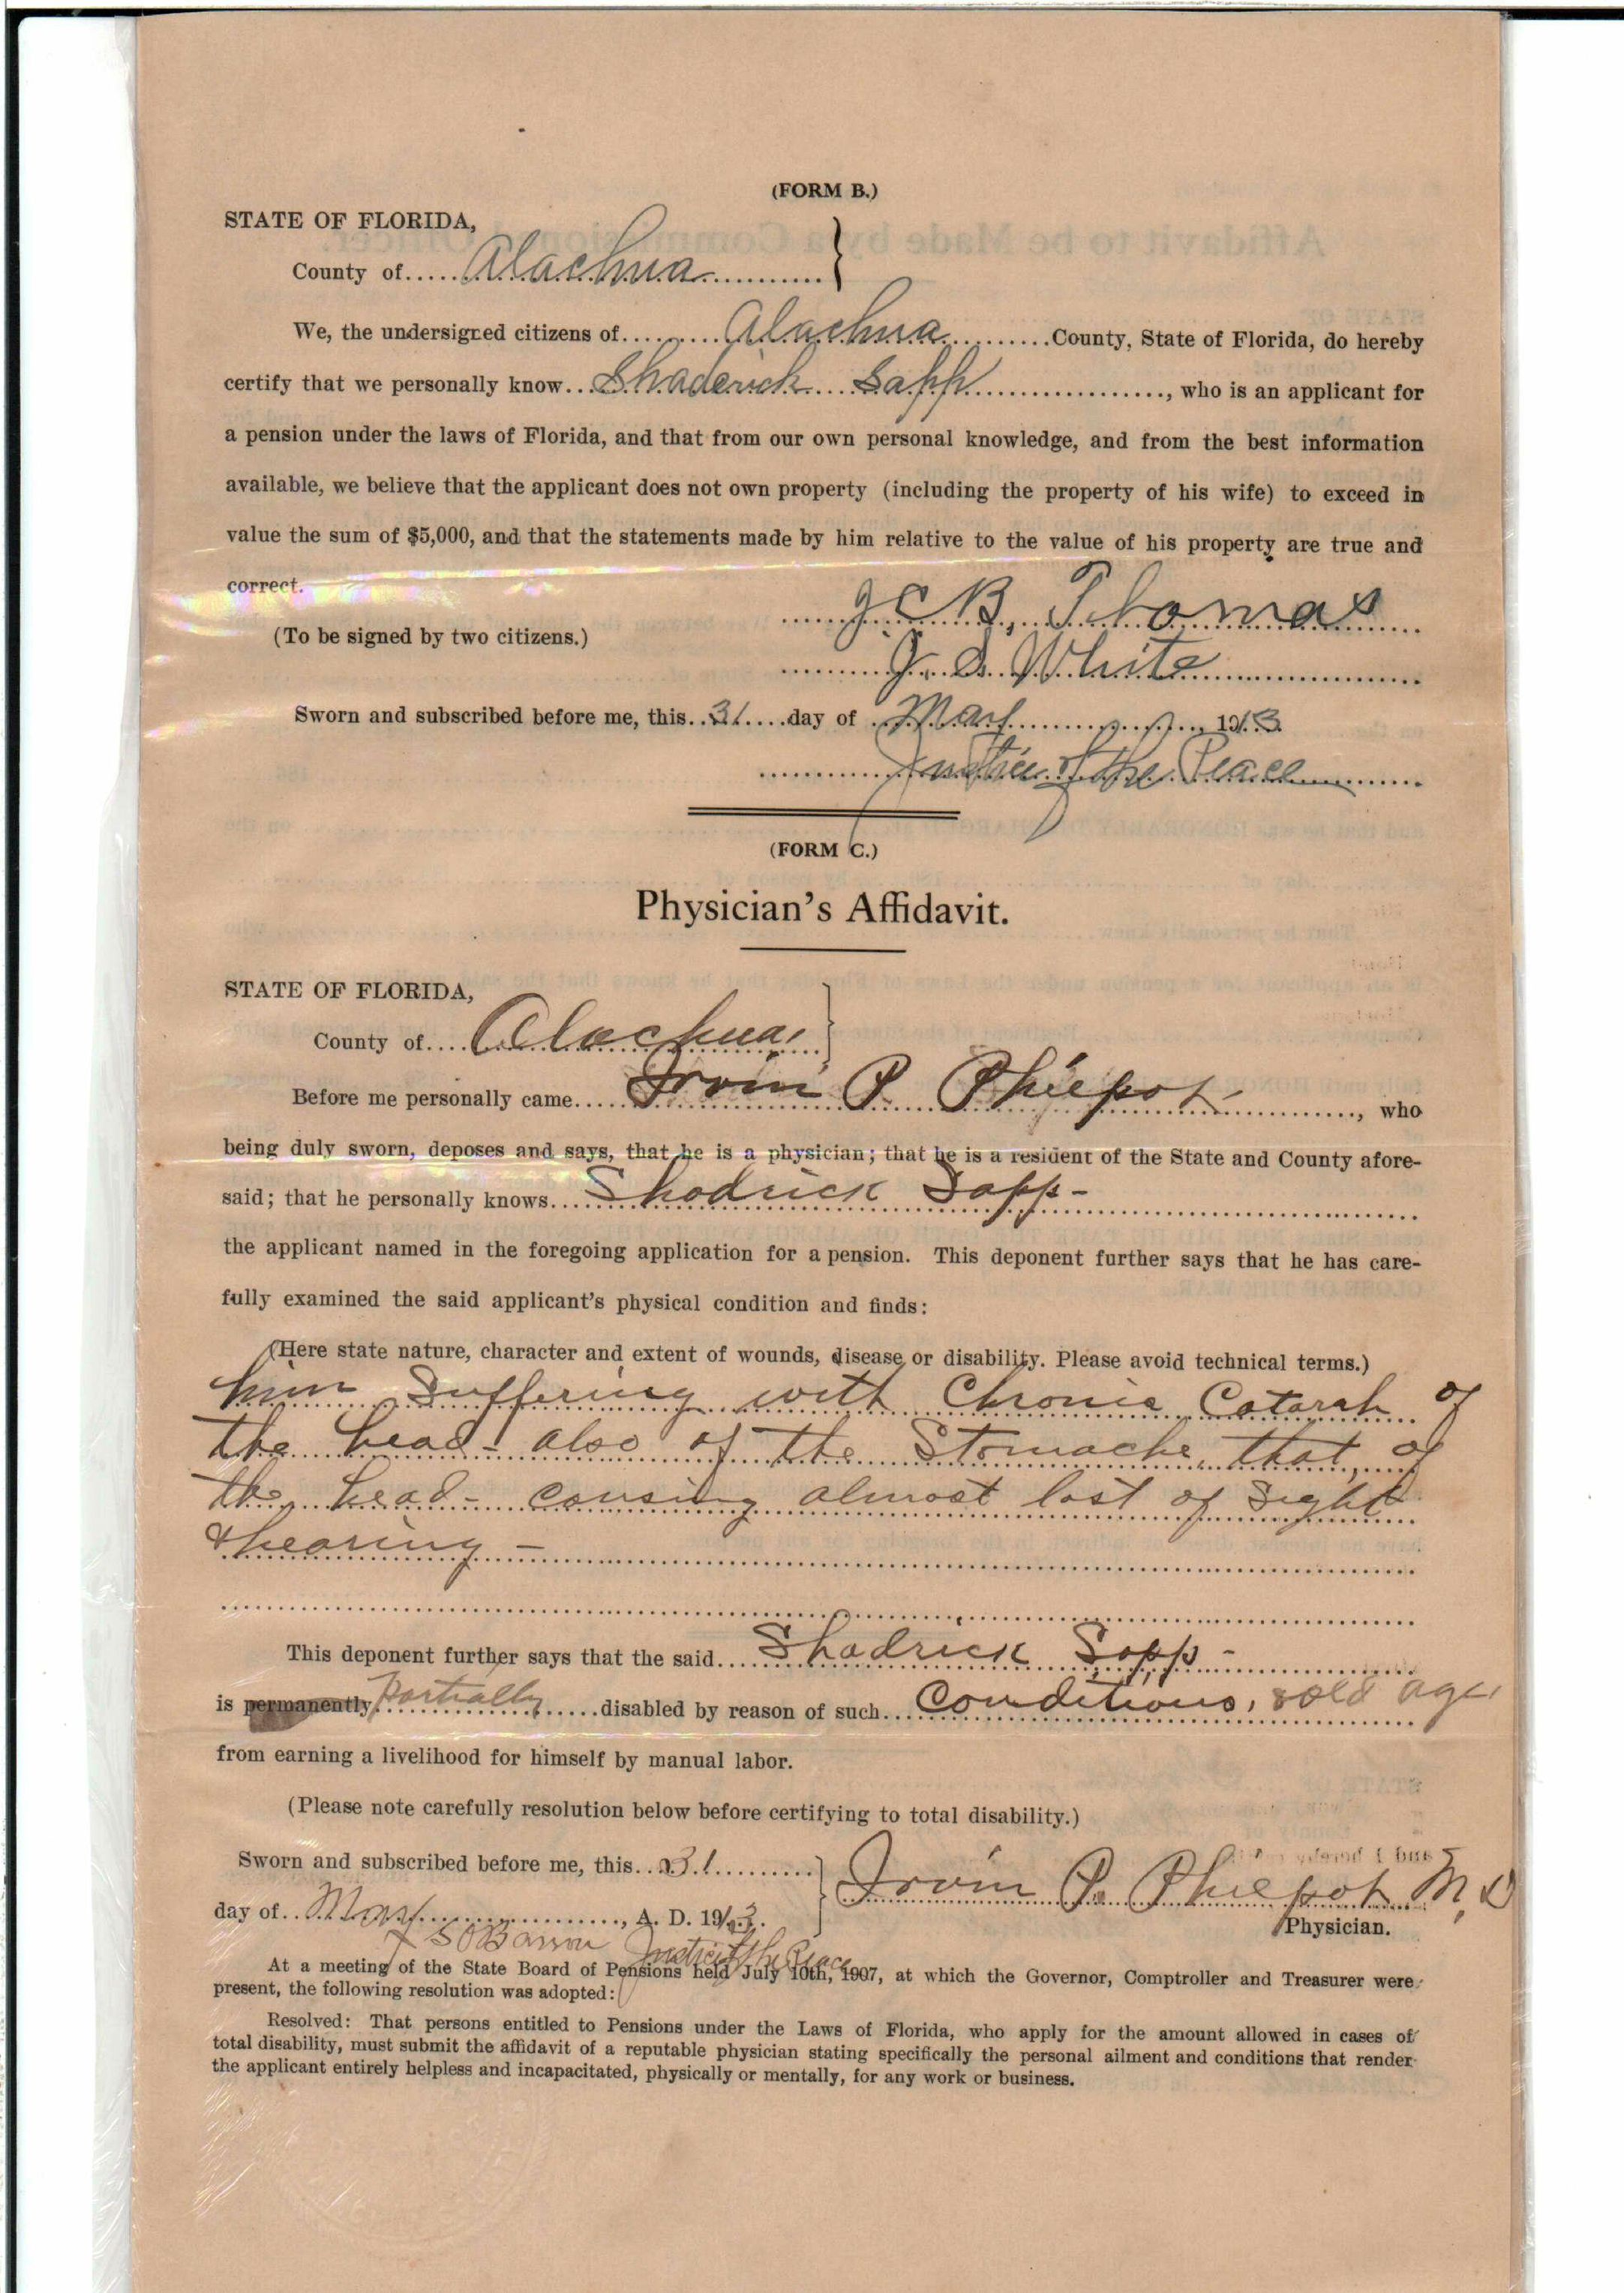 (FORM B.)
STATE OF FLORIDA,
County of Alachua
We, the undersigned citizens of Alachua County, State of Florida, do hereby
certify that we personally know Shaderick Sapp, who is an applicant for
a pension under the laws of Florida, and that from our own personal knowledge, and from the best information
available, we believe that the applicant does not own property (including the property of his wife) to exceed in
value the sum of $5,000, and that the statements made by him relative to the value of his property are true and
correct.
J C B, Thomas
(To be signed by two citizens.)
J. S. White
Sworn and subscribed before me, this 31 day of May, 1913
Justice of the Peace
(FORM C.)
Physician's Affidavit.
STATE OF FLORIDA,
County of Alachua,
Before me personally came Irvin P. Philpot, who
being duly sworn, deposes and says, that he is a physician; that he is a resident of the State and County afore-
said; that he personally knows Shadrick Sapp-
the applicant named in the foregoing application for a pension. This deponent further says that he has care-
fully examined the said applicant's physical condition and finds:
(Here state nature, character and extent of wounds, disease or disability. Please avoid technical terms.)
him Suffering with Chronic Catarah of
the head - also of the Stomache, that, of
the head - causing almost lost of Sight
& hearing -
This deponent further says that the said Shadrick Sapp -
is permanently Partially disabled by reason of such Conditions, & old age,
from earning a livelihood for himself by manual labor.
(Please note carefully resolution below before certifying to total disability.)
Sworn and subscribed before me, this 31
Irvin P. Philpot M, D
day of May, A. D. 1913.
Physician.
Justice of the Peace
At a meeting of the State Board of Pensions held July 10th, 1907, at which the Governor, Comptroller and Treasurer were
present, the following resolution was adopted:
Resolved: That persons entitled to Pensions under the Laws of Florida, who apply for the amount allowed in cases of
total disability, must submit the affidavit of a reputable physician stating specifically the personal ailment and conditions that render
the applicant entirely helpless and incapacitated, physically or mentally, for any work or business.